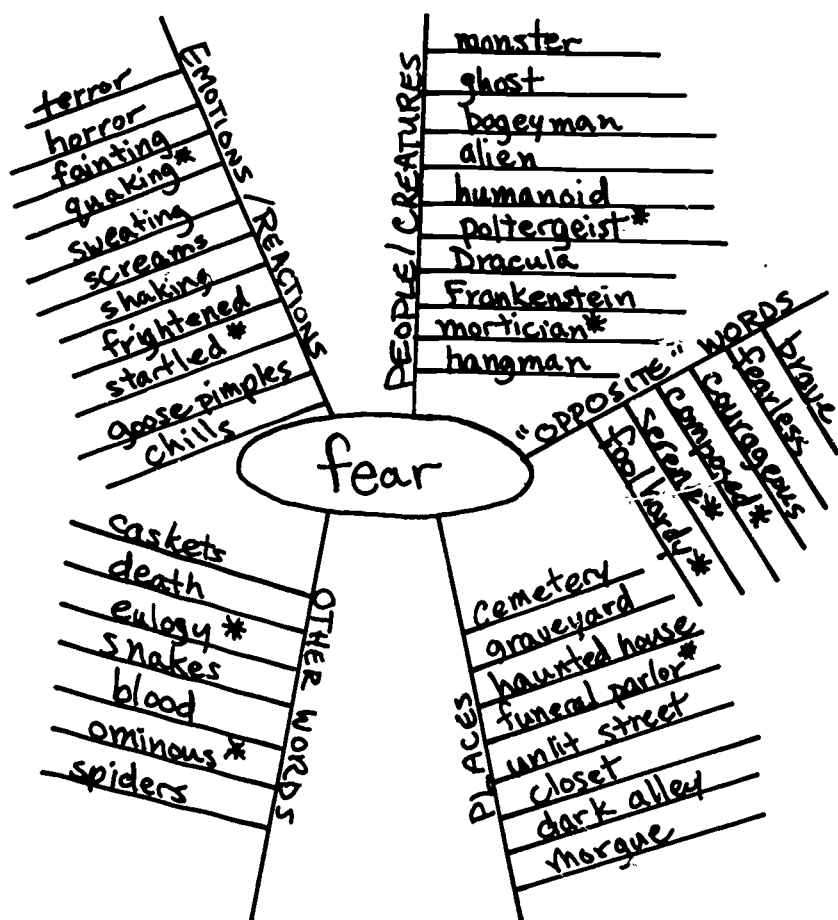 EMOTIONS/REACTIONS
terror
horror
fainting
quaking*
sweating
screams
shaking
frightened
startled*
goose pimples
chills
PEOPLE/CREATURES
monster
ghost
bogeyman
alien
humanoid
poltergeist*
Dracula
Frankenstein
mortician*
hangman
"OPPOSITE" WORDS
brave
fearless
courageous
composed*
serene*
foolhardy*
fear
OTHER WORDS
caskets
death
eulogy*
snakes
blood
ominous*
spiders
PLACES
cemetery
graveyard
haunted house
funeral parlor*
unlit street
closet
dark alley
morgue